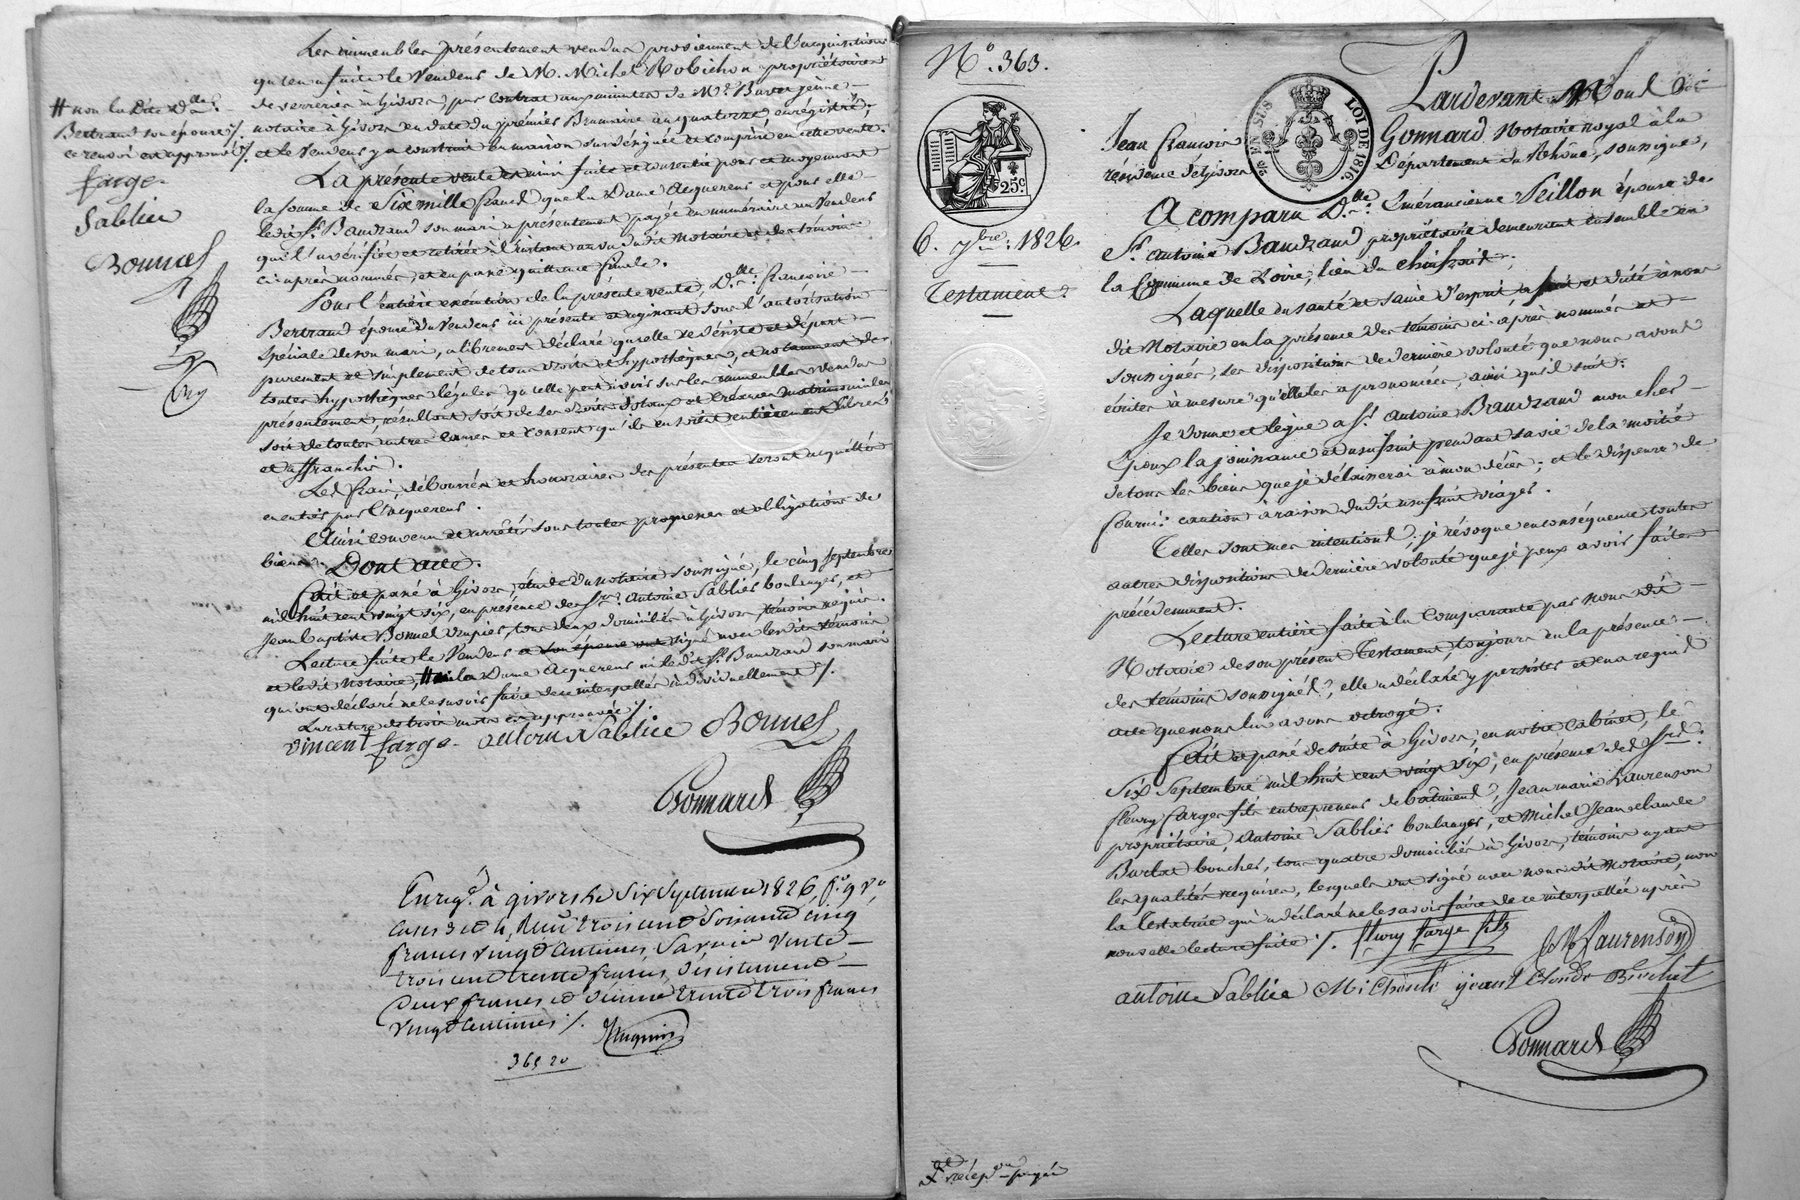 Les immeubles présentement vendus proviennent de l'acquisition
qu'en a faite le Vendeur de M. Michel Robichon propriétaire
de verreries à Givors, par contrat aux minutes de Me
notaire à Givors en date du premier Brumaire an quatorze, enrégistré;
et le Vendeur y a construit la maison sus désignée et comprise en cette vente.
La présente vente est ainsi faite et consentie pour et moyennant
la somme de Six mille francs que la Dame Acquereur et pour elle
ledit Sr. Baudrand son mari a présentement payée en numéraire au Vendeur
qui l'a vérifiée et retirée à l'instant au vu dudit Notaire et des témoins
ci après nommés, et en passe quittance finale.
Pour l'entière exécution de la présente vente, Dlle. Françoise
Bertrand épouse du Vendeur ici présente et agissant sous l'autorisation
Spéciale de son mari, a librement déclaré qu'elle se désiste et départ
purement et simplement de tous droits et hypothèques, et notamment des
toutes hypothèques légales qu'elle peut avoir sur les immeubles vendus
présentement, résultant soit de ses droits dotaux et créances matrimoniales
soit de toutes autres causes et consent qu'ils en soient entièrement libérés
et affranchis.
Les frais, déboursés et honoraires des présentes seront acquittés
en entier par l'acquereur.
Ainsi convenu et arrêté sous toutes promesses et obligations de
biens. Dont acte.
Fait et passé à Givors, étude du Notaire soussigné, le cinq Septembre
mil huit cent vingt six, en présence des Srs. Antoine Sablier boulanger, et
Jean Baptiste Bonnel, tous deux domiciliés à Givors, témoins requis.
Lecture faite le Vendeur et son épouse ont signé avec lesdits témoins
et ledit Notaire, # la Dame Acquereur ni ledit Sr. Baudrand son mari
qui ont déclaré ne le savoir faire de ce interpellés individuellement /.
La rature de trois mots est approuvée /.
vincent farge antoine Sablier Bonnel
Gonnard
# non la dite Dlle.
Bertrand son épouse /.
ce renvoi est approuvé /.
farge
Sablier
Bonnel
Enregé. à givors le Six Septembre 1826, fo. 9 vo.
cases 3 et 4, Reçu trois cent Soixante cinq
francs vingt Centimes, Savoir Vente
trois cent trente francs, désistement
deux francs et dixième trente trois francs
vingt Centimes /.
365 20
No. 363.
25c.
6. 7bre. 1826.
Testament.
25 EN SUS
LOI DE 1816.
Pardevant Me Paul
Jean François Gonnard Notaire royal à la
résidence de Givors Département du Rhône, soussigné,
A comparu Dlle. Emérancienne Seillon épouse de
Sr. antoine Baudrand propriétaire demeurant ensemble en
la Commune de Loire, lieu du
Laquelle en santé et saine d'esprit a fait et dicté à nous
dit Notaire en la présence des témoins ci-après nommés et
soussignés, ses dispositions de dernière volonté que nous avons
écrites à mesure qu'elle les a prononcées, ainsi qu'il suit:
Je donne et lègue à Sr. antoine Baudrand mon cher
époux la jouissance et usufruit pendant sa vie de la moitié
de tous les biens que je délaisserai à mon décès; et le dispense de
fournir caution à raison dudit usufruit viager.
Telles sont mes intentions, je révoque en conséquence toutes
autres dispositions de dernière volonté que je peux avoir faites
précédemment.
Lecture entière faite à la Comparante par nous dit
Notaire de son présent Testament, toujours en la présence
des témoins soussignés, elle a déclaré y persister et en a requis
acte que nous lui avons octroyé.
Fait et passé de suite à Givors, en notre cabinet, le
Six Septembre mil huit cent vingt six, en présence des Srs.
fleury farge fils entrepreneur de bâtiments, Jean marie Laurenson
propriétaire, Antoine Sablier boulanger, et Michel Jean claude
boucher, tous quatre domiciliés à Givors, témoins ayant
les qualités requises, lesquels ont signé avec nous dit Notaire, non
la Testatrice qui a déclaré ne le savoir faire de ce interpellée après
nouvelle lecture faite /. fleury farge fils JM Laurenson
antoine Sablier Michel jean Claude
Gonnard